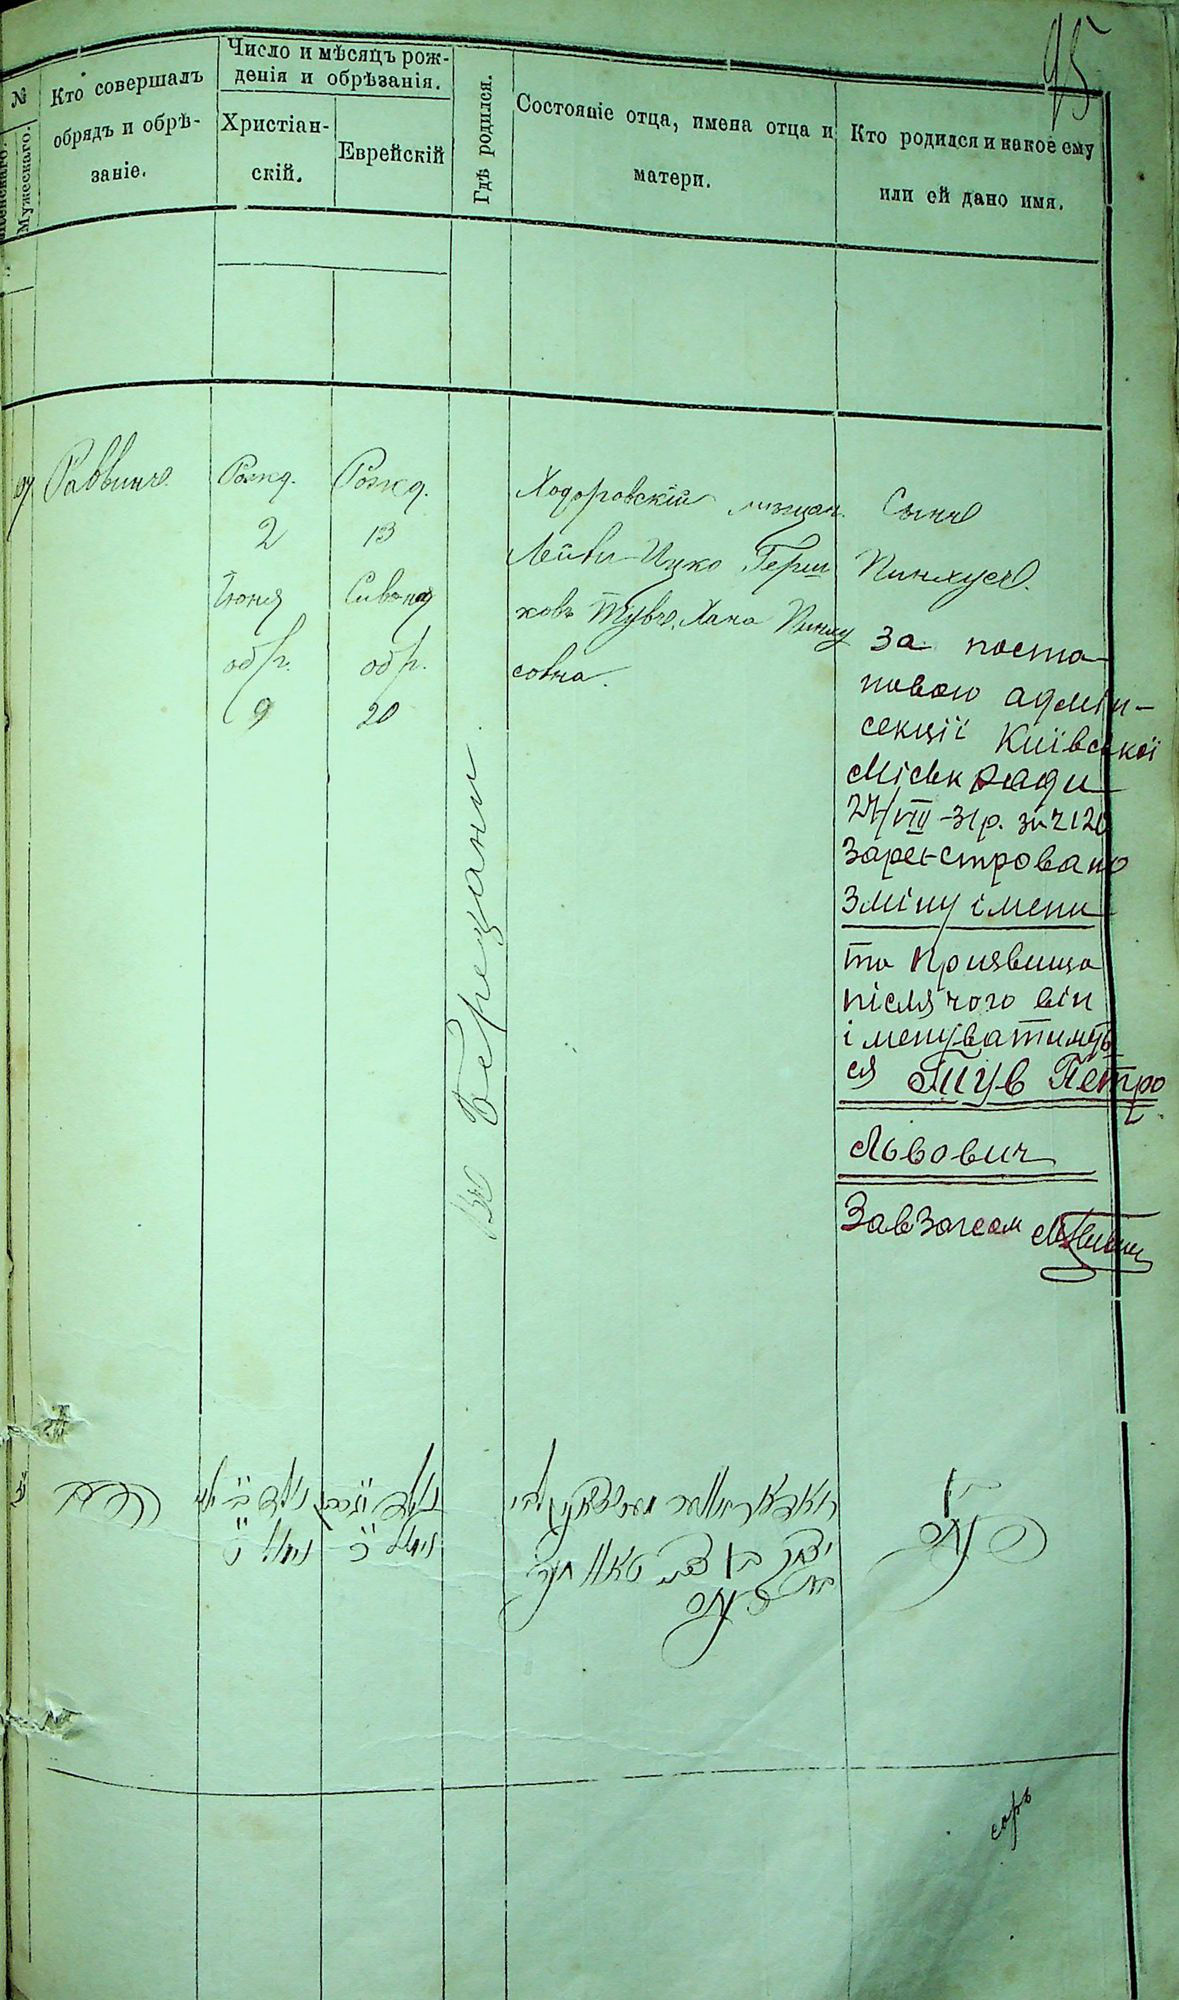 95
№
Женскаго.
Мужескаго.
Кто совершалъ
обрядъ и обрѣ-
заніе.
Число и мѣсяцъ рож-
денія и обрѣзанія.
Христіан-
скій.
Еврейскій
Гдѣ родился.
Состояніе отца, имена отца и
матери.
Кто родился и какое ему
или ей дано имя.
Раввинъ
Рожд.
2
Іюня
обр.
9
Рожд.
13
Сивона
обр.
20
Въ Березани
Ходоровскій мѣщан.
Лейви-Ицко Герш
ковъ Тувъ, Хана Пинху
совна.
Сынъ
Пинхусъ.
За поста-
новою адмін-
секції Київської
Міськради
27/VIII-31р. зн 2120
Зареєстровано
Зміну імени
та Прізвища
після чого він
іменуватимуть
ся Тув Петро
Львович
Завзагсом
נולד ב׳
נימול ט׳
נולד י״ג
נימול כ׳
יצחק בן צבי טאוו חנה
בת פנחס
בן
פנחס